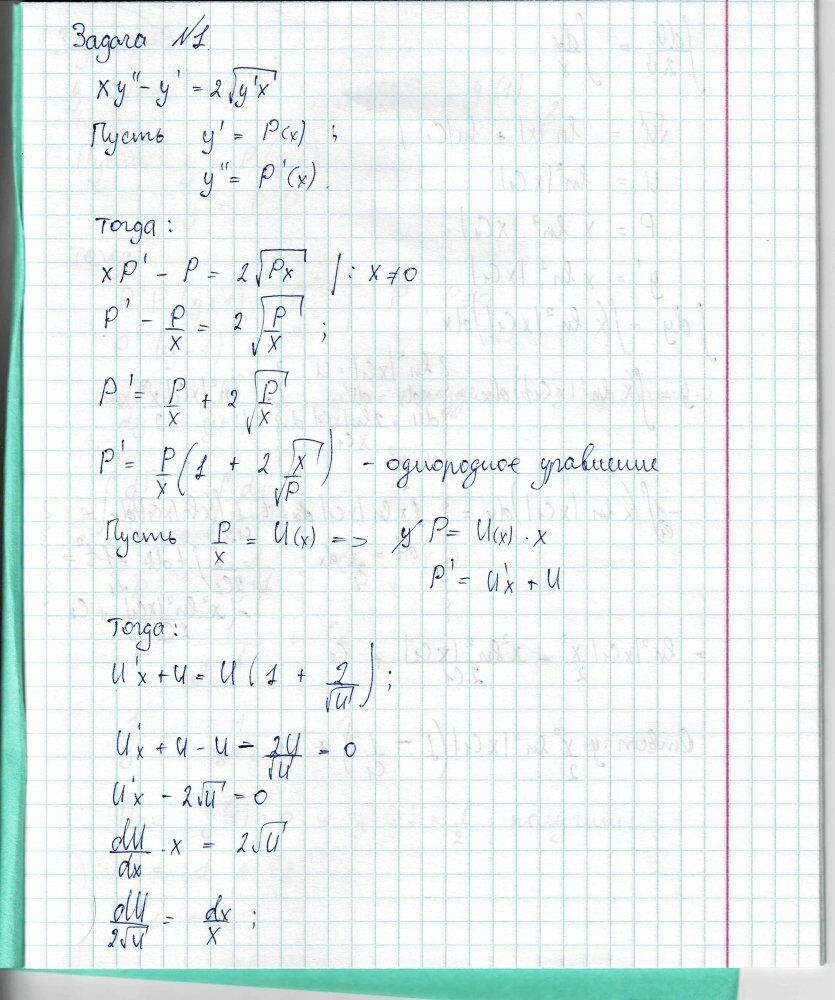 Задача №1
xy'' - y' = 2√(y'x)
Пусть y' = P(x) ;
y'' = P'(x).
Тогда:
xP' - P = 2√(Px) | : x ≠ 0
P' - P/x = 2√(P/x) ;
P' = P/x + 2√(P/x)
P' = P/x (1 + 2√x/√P) - однородное уравнение
Пусть P/x = U(x) => P = U(x) · x
P' = U'x + U
Тогда:
U'x + U = U (1 + 2/√U) ;
U'x + U - U - 2U/√U = 0
U'x - 2√U = 0
dU/dx · x = 2√U
dU/2√U = dx/x ;